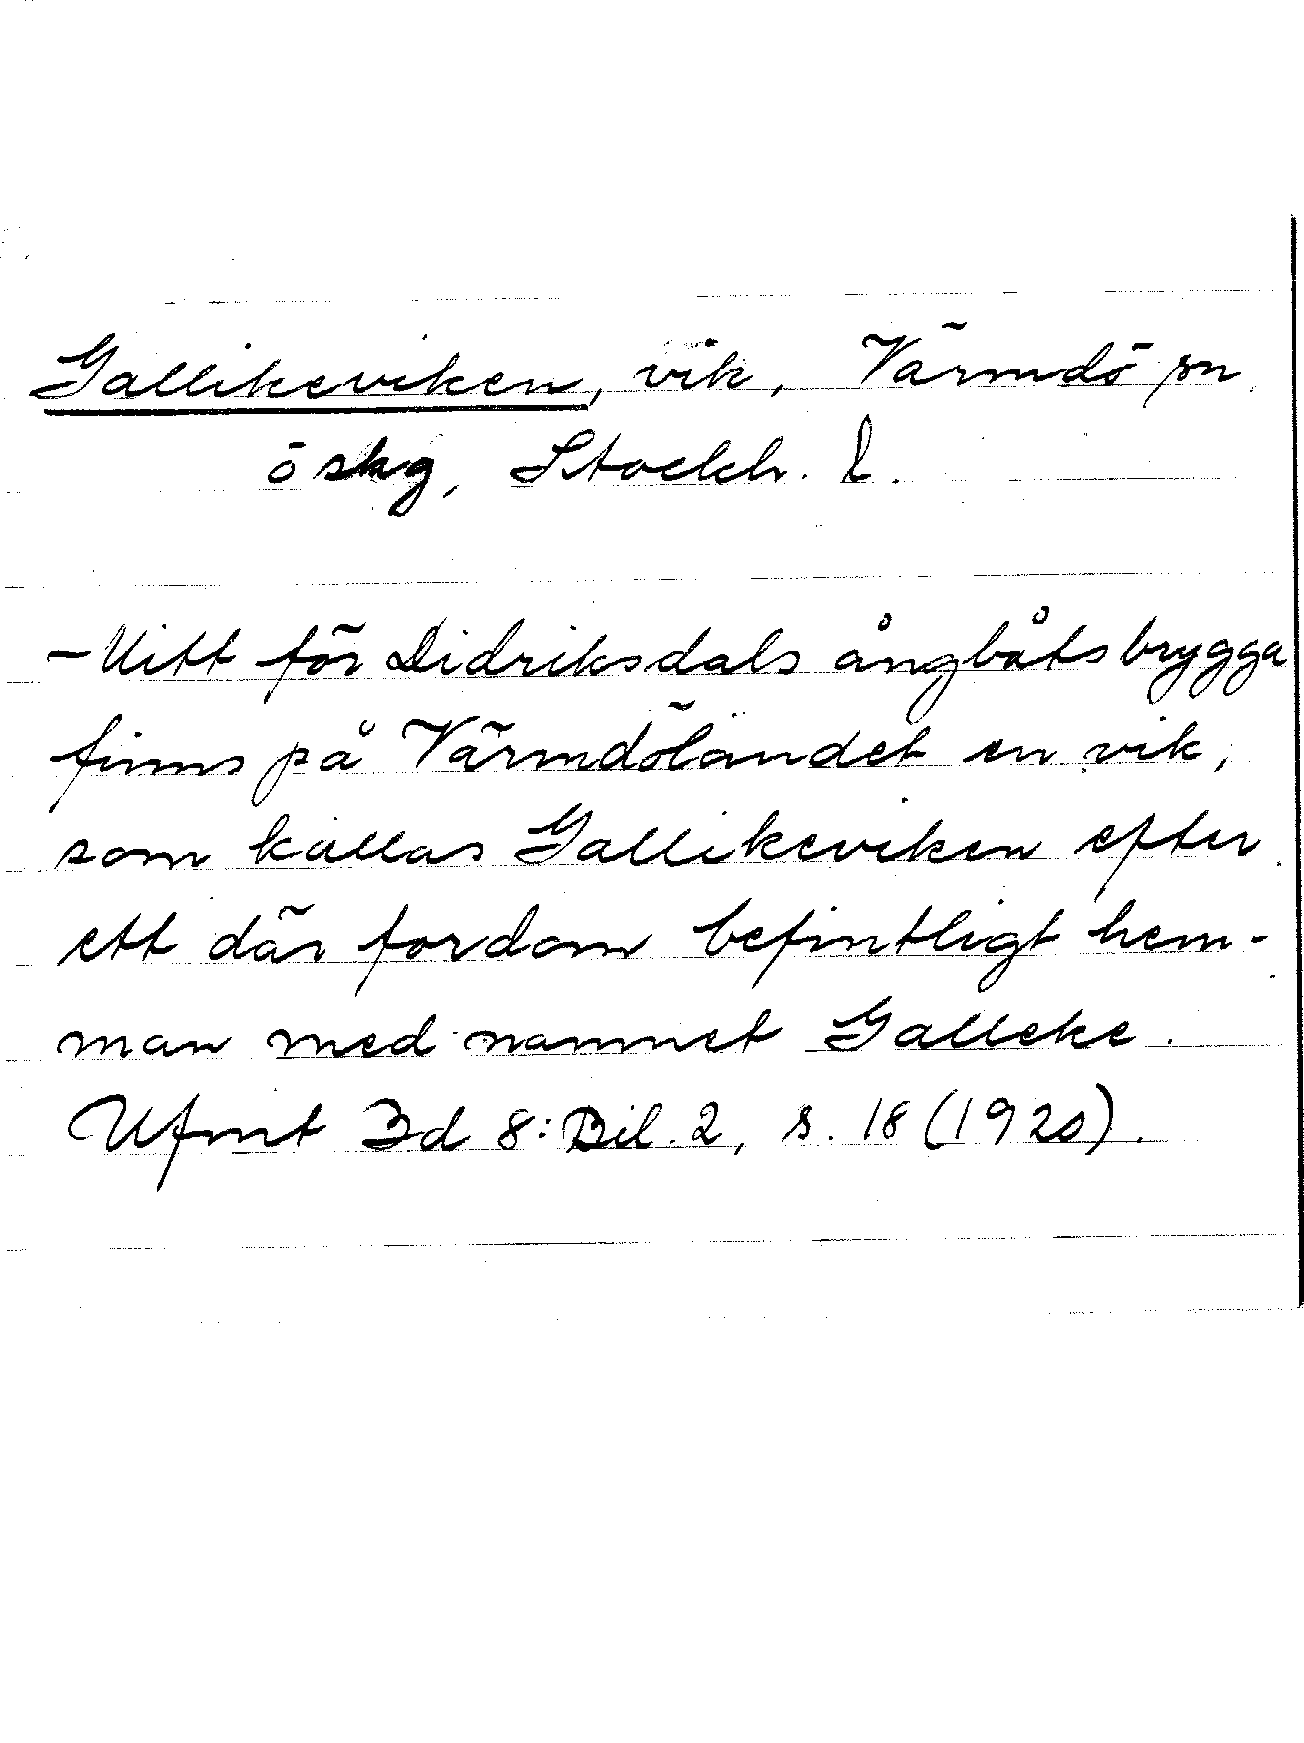 Gallikeviken, vik, Värmdö sn
ö skg, Stockh. l.
- Mitt för Didriksdals ångbåtsbrygga
finns på Värmdölandet en vik,
som kallas Gallikeviken efter
ett där fordom befintligt hem-
man med namnet Galleke.
Ufmt 3d 8: Bil. 2, s. 18 (1920).